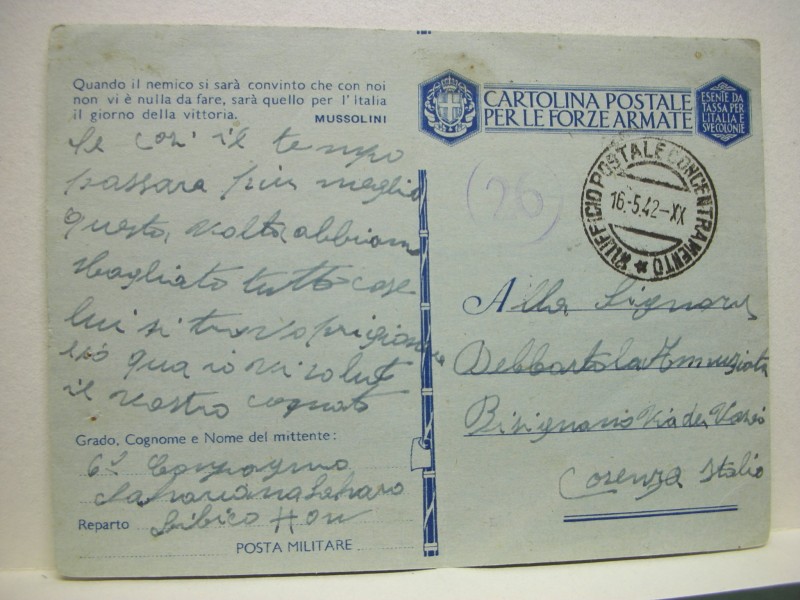 Quando il nemico si sarà convinto che con noi
non vi è nulla da fare, sarà quello per l'Italia
il giorno della vittoria.
MUSSOLINI
Se così il tempo
passara piu meglio
questa volta abbiam
sbagliato tutto cose
lui si trova prigioniero
io qua io vi saluto
il vostro cognato
Grado, Cognome e Nome del mittente:
6ª Compagnia
Sahariana Sahara
Reparto Libico Hon
POSTA MILITARE
CARTOLINA POSTALE
PER LE FORZE ARMATE
ESENTE DA
TASSA PER
L'ITALIA E
SVE COLONIE
26
UFFICIO POSTALE CONCENTRAMENTO
16·5·42-XX
Alla Signora
Debbartola Annuziata
Bisignano Via dei
Cosenza Italia